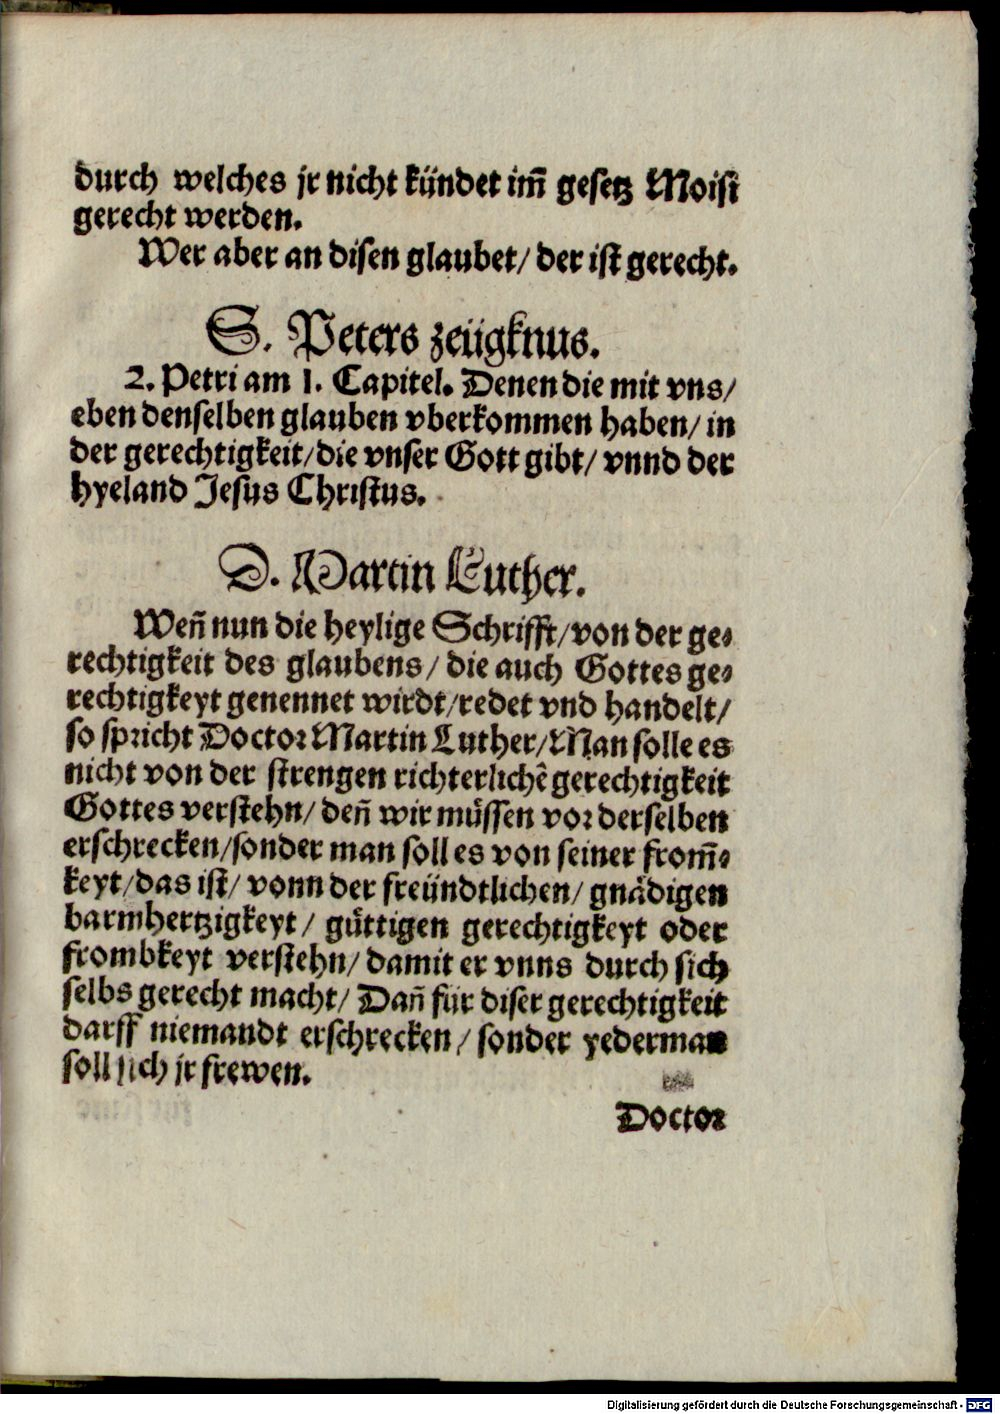 durch welches jr nicht kündet im̃ gesetz Moisi
gerecht werden.
Wer aber an disen glaubet/ der ist gerecht.
S. Peters zeügknus.
2. Petri am 1. Capitel. Denen die mit vns/
eben denselben glauben vberkommen haben/ in
der gerechtigkeit/die vnser Gott gibt/ vnnd der
hyeland Jesus Christus.
D. Martin Luther.
Weñ nun die heylige Schrifft/von der ge⸗
rechtigkeit des glaubens/ die auch Gottes ge⸗
rechtigkeyt genennet wirdt/redet vnd handelt/
so spricht Doctor Martin Luther/Man solle es
nicht von der strengen richterlichẽ gerechtigkeit
Gottes verstehn/ deñ wir müssen vor derselben
erschrecken/sonder man soll es von seiner from̃⸗
keyt/das ist/ vonn der freündtlichen/ gnädigen
barmhertzigkeyt/ güttigen gerechtigkeyt oder
frombkeyt verstehn/ damit er vnns durch sich
selbs gerecht macht/ Dañ für diser gerechtigkeit
darff niemandt erschrecken/ sonder yederman
soll sich jr frewen.
Doctor
Digitalisierung gefördert durch die Deutsche Forschungsgemeinschaft - DFG